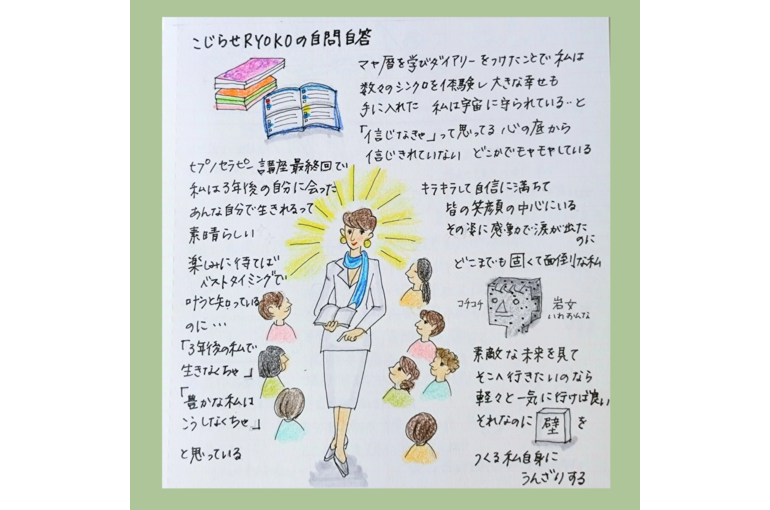 こじらせRYOKOの自問自答
マヤ暦を学びダイアリーをつけたことで私は
数々のシンクロを体験し大きな幸せも
手に入れた 私は宇宙に守られている‥と
「信じなきゃ」って思ってる 心の底から
信じきれていない どこかでモヤモヤしている
ヒプノセラピー講座最終回で
私は3年後の自分に会った
あんな自分で生きれるって
素晴らしい
楽しみに待てば
ベストタイミングで
叶うと知っている
のに・・・
「3年後の私で
生きなくちゃ」
「豊かな私は
こうしなくちゃ」
と思っている
キラキラして自信に満ちて
皆の笑顔の中心にいる
その姿に感動で涙が出た
のに
どこまでも固くて面倒な私
コチコチ
岩女
いわおんな
素敵な未来を見て
そこへ行きたいのなら
軽々と一気に行けば良い
それなのに壁を
つくる私自身に
うんざりする